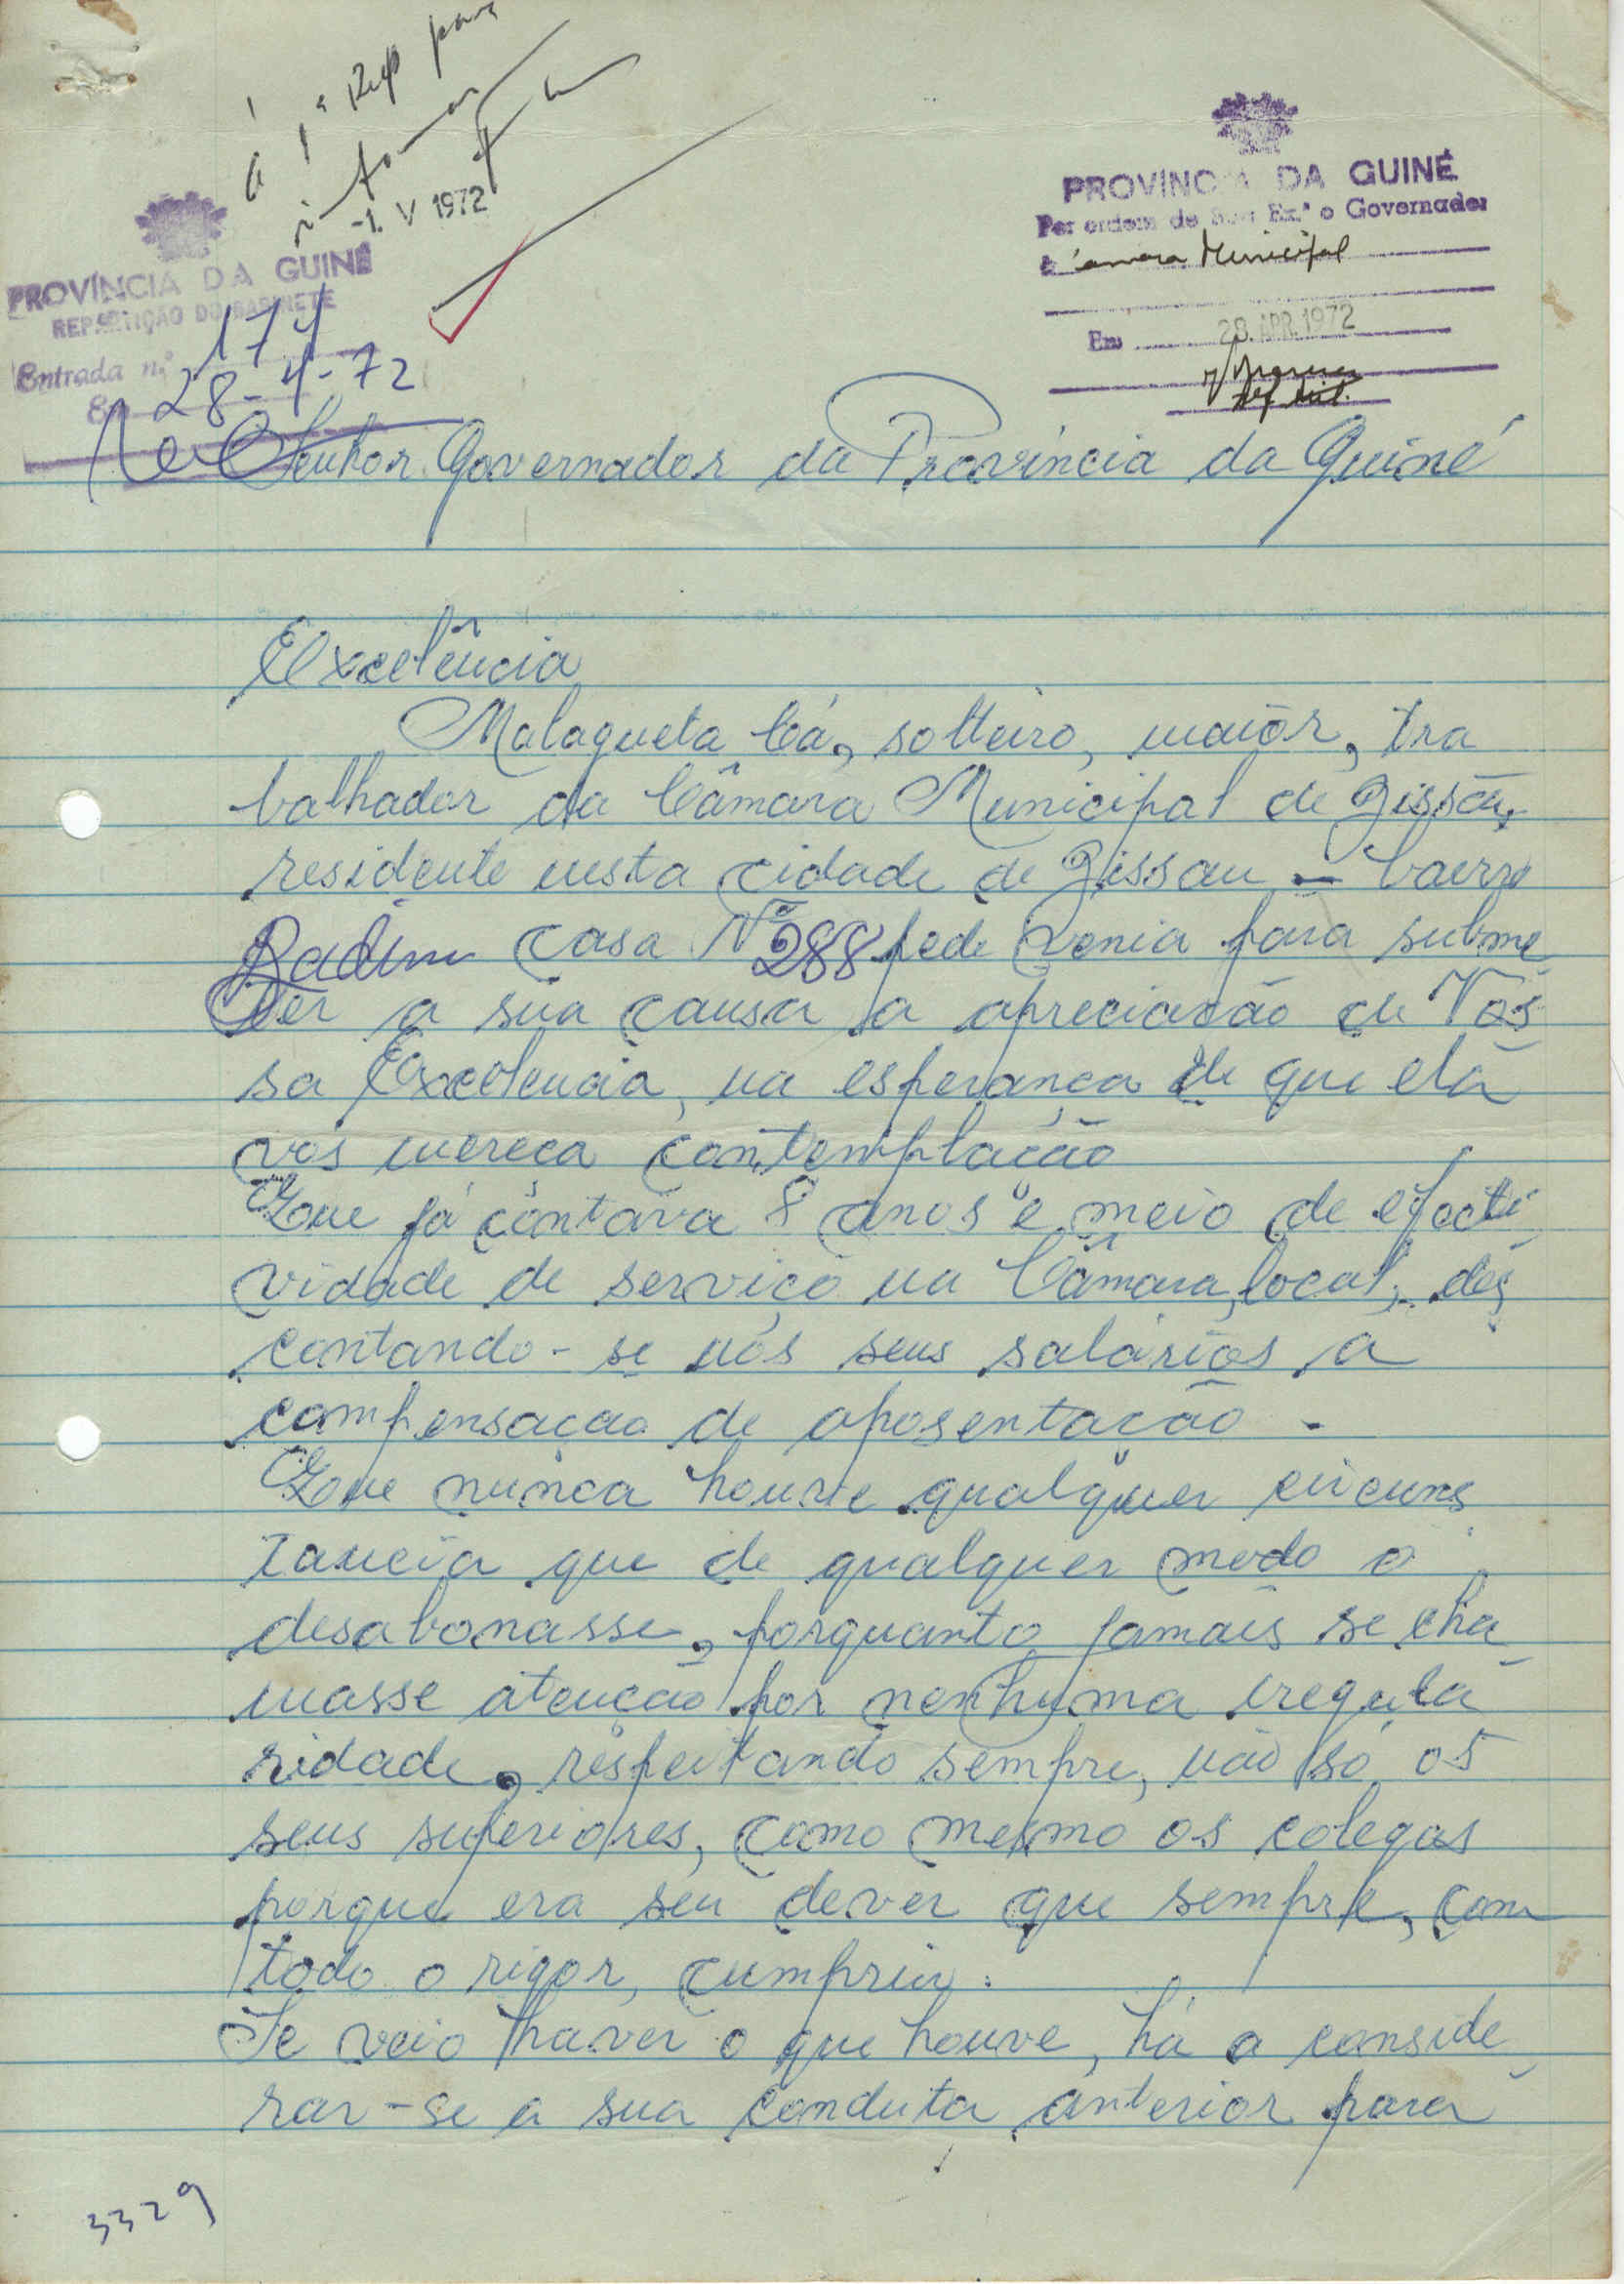 à 1ª Rep para
informar
-1. V 1972
PROVÍNCIA DA GUINÉ
REPARTIÇÃO DO GABINETE
Entrada n.º 174
Em 28-4-72
PROVÍNCIA DA GUINÉ
Por ordem de Sua Ex.ª o Governador
à Câmara Municipal
Em 28. APR. 1972
Senhor Governador da Província da Guiné
Excelência
Malagueta Cá, solteiro, maior, tra
balhador da Câmara Municipal de Bissau,
residente nesta cidade de Bissau - bairro
Badim casa Nº 288 pede venia para subme
ter a sua causa a apreciacão de Vos
sa Excelencia, na esperança de que ela
vos mereca contemplação
Que já contava 8 anos e meio de efecti
vidade de serviço na Câmara, local, des
contando-se nos seus salários a
compensaçao de aposentacão.
Que nunca houve qualquer circuns
tancia que de qualquer modo o
desabonasse, porquanto jamais se cha
masse atencão por nenhuma iregula
ridade, respeitando sempre, não só os
seus superiores, como mesmo os colegas
porque era seu dever que sempre, com
todo o rigor, cumpriu.
Se veio haver o que houve, há a conside
rar-se a sua conduta anterior para
3329